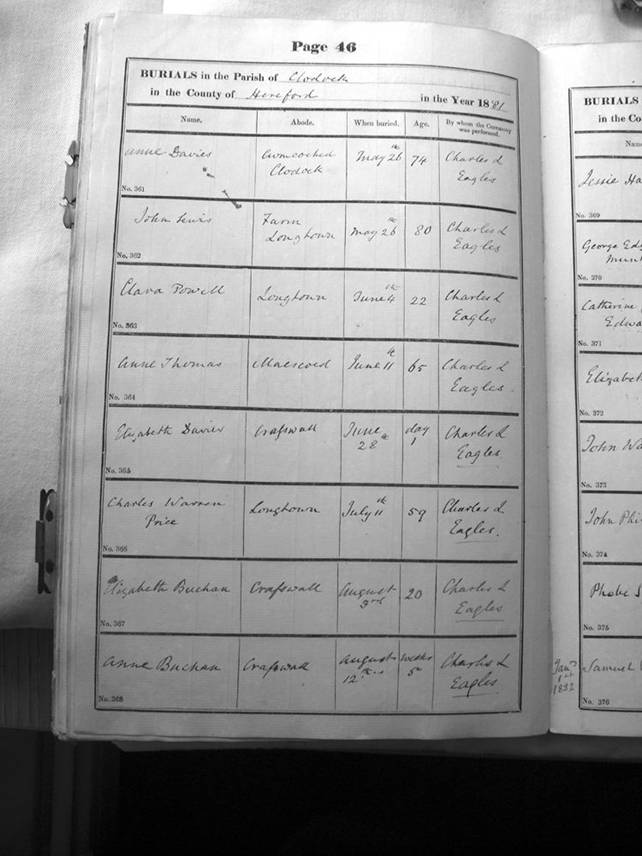 Page 46
BURIALS in the Parish of Clodock
in the County of Hereford in the Year 1881
Name. Abode. When buried. Age. By whom the Ceremony was performed.
Anne Davies Cwmcoched May 26th 74 Charles L
Clodock Eagles
No. 361
John Lewis Farm May 26th 80 Charles L
Longtown Eagles
No. 362
Clara Powell Longtown June 4th 22 Charles L
Eagles
No. 363
Anne Thomas Maescoed June 11th 65 Charles L
Eagles.
No. 364
Elizabeth Davies Crafswall June day Charles L
28th 1 Eagles
No. 365
Charles Warren Longtown July 11th 59 Charles L
Price Eagles.
No. 366
Elizabeth Buchan Crafswall August 20 Charles L
3rd Eagles
No. 367
Anne Buchan Crafswall August weeks Charles L
12th 5 Eagles
No. 368
BURIALS
in the Co
Nam
Jessie Ha
No. 369
George Ed
No. 370
Catherine
Edwa
No. 371
Elizabeth
No. 372
John Wa
No. 373
John Phi
No. 374
Phobe S
No. 375
Jany
1st
1882
Samuel
No. 376